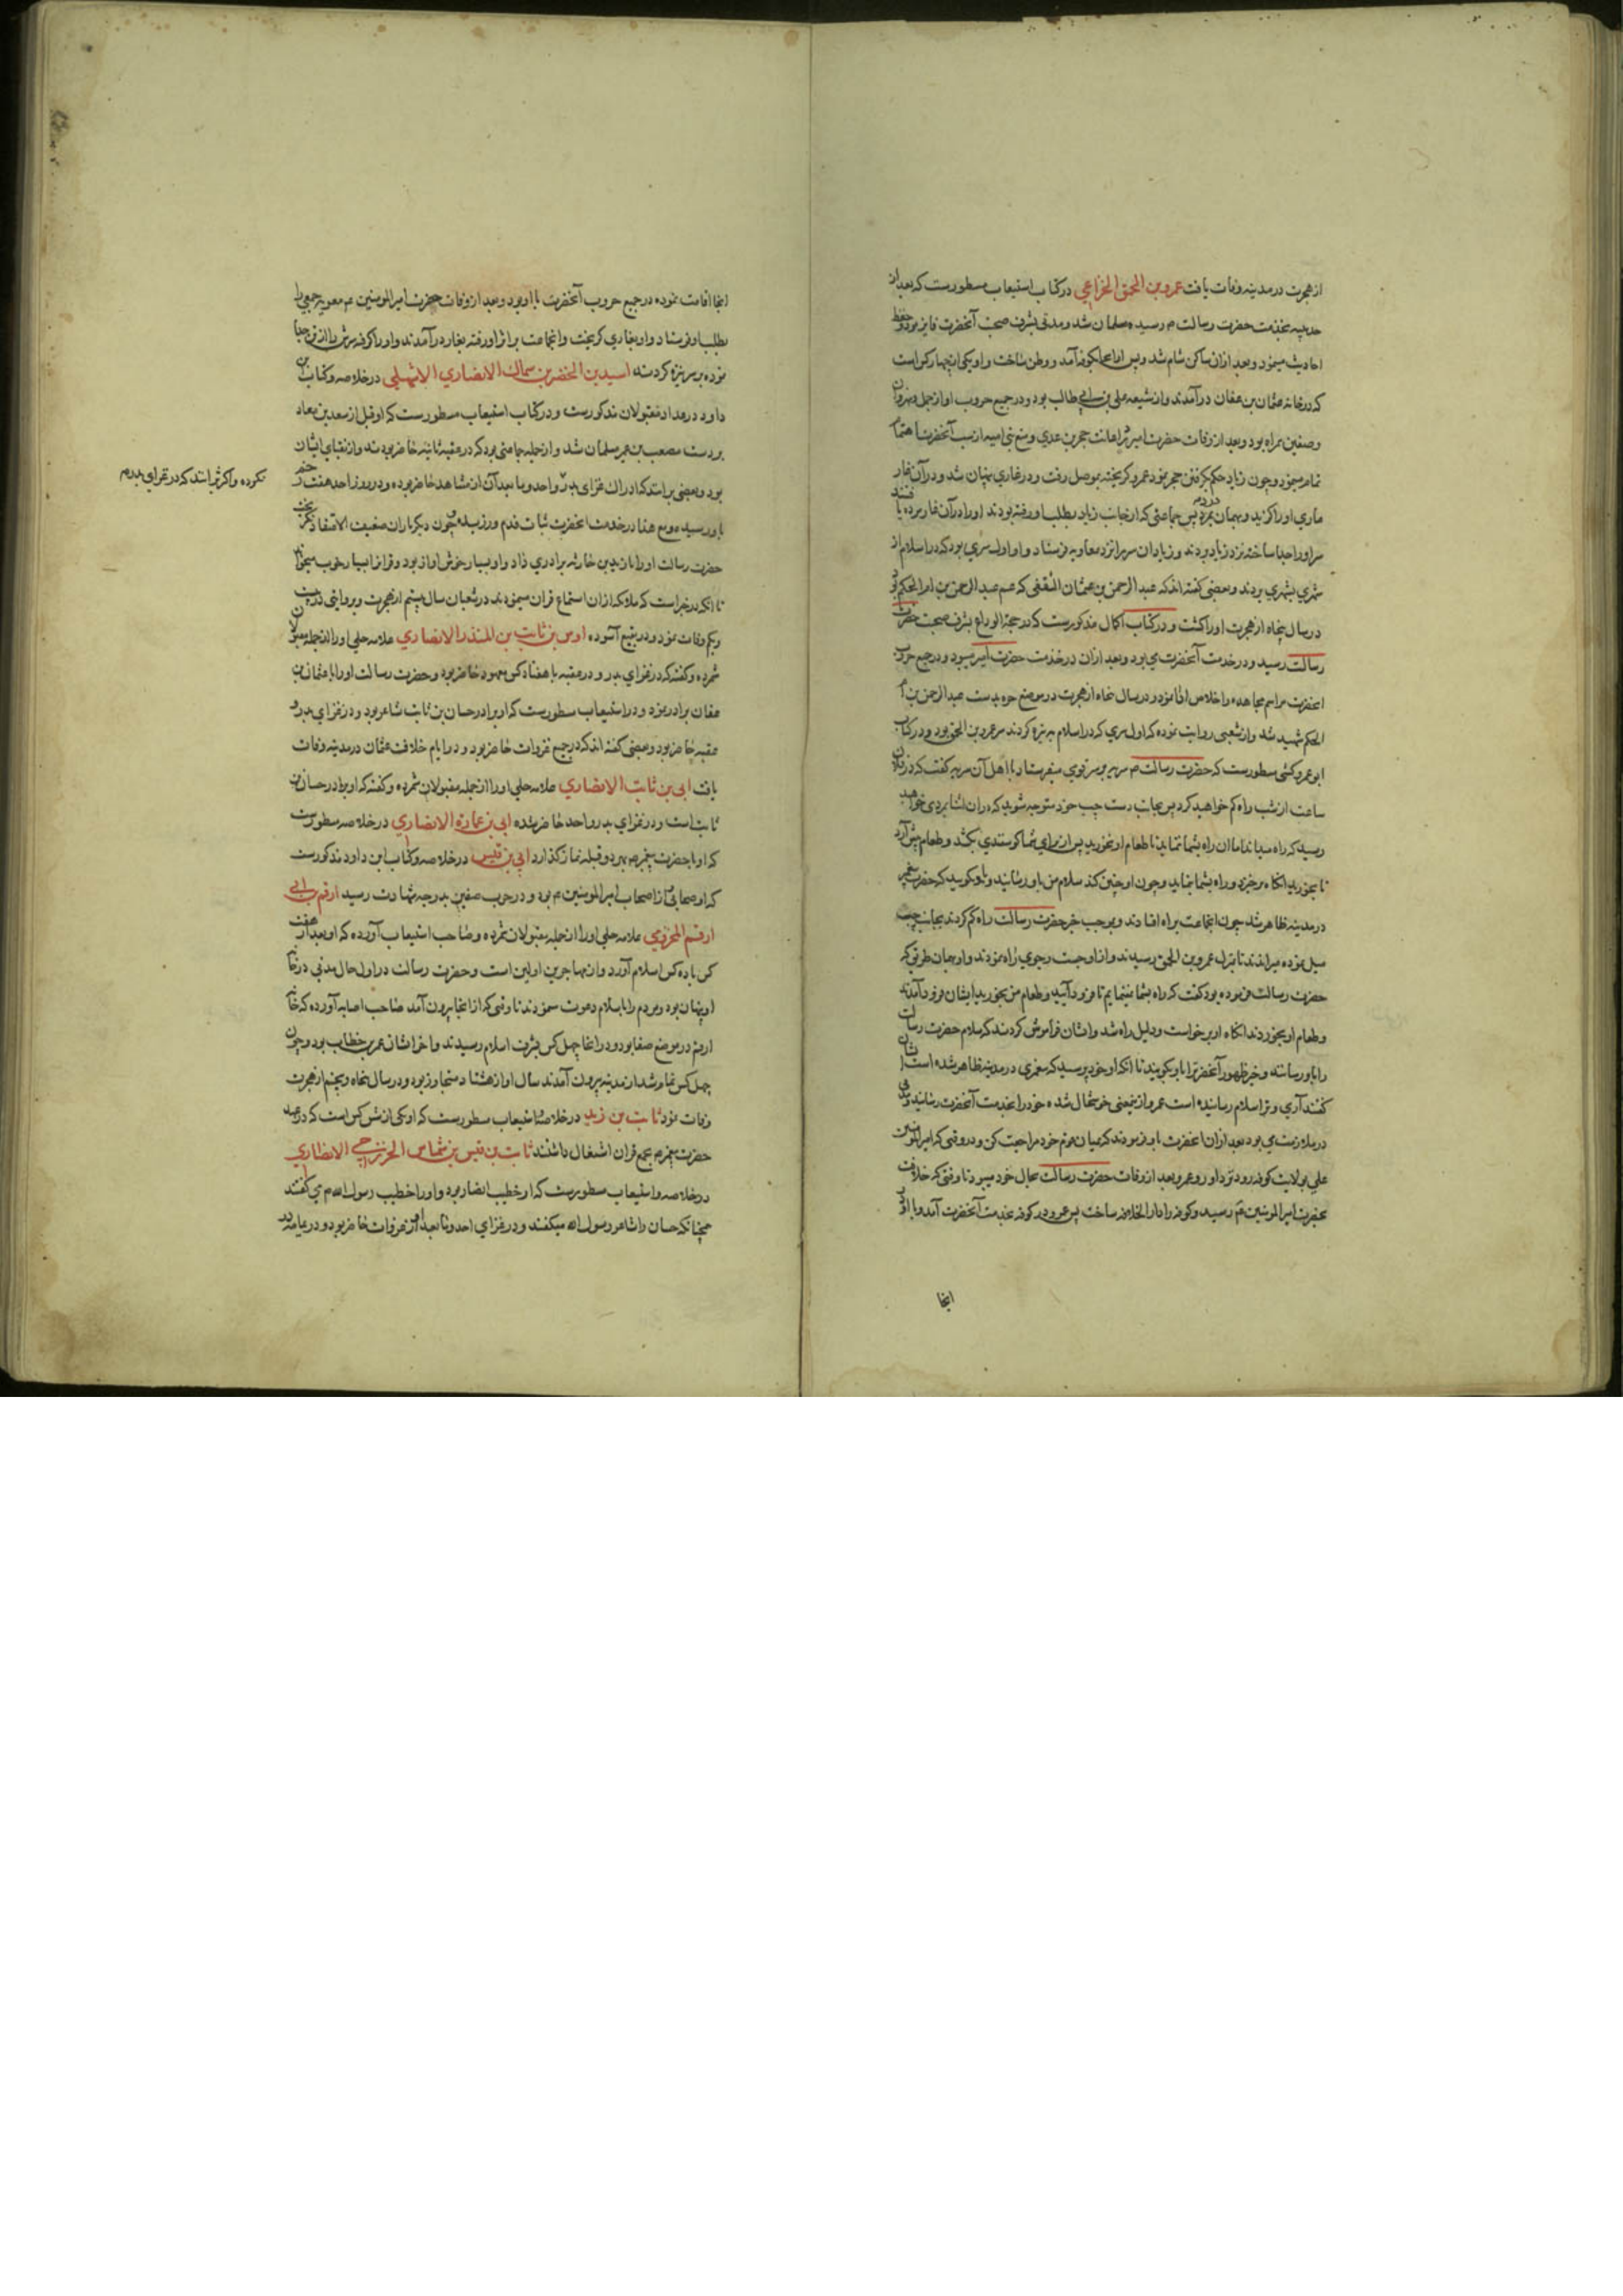 از هجرت در مدینه وفات یافت عمرو بن الحمق الخزاعی در کتاب استیعاب مسطورست که بعد از
حدیبیه بخدمت حضرت رسالت م رسیده مسلمان شد و مدتی بشرف صحبت آنحضرت فایز بود و حفظ
احادیث مینمود و بعد ازان ساکن شام شد و پس از انجا بکوفه آمد و وطن ساخت و او یکی از چهار کس است
که در خانه عثمان بن عفان در آمدند و از شیعه علی بن ابی طالب بود و در جمیع حروب او از جمل و نهروان
و صفین همراه بود و بعد از وفات حضرت امیر در اعانت حجر بن عدی و منع بنی امیه از سب آنحضرت اهتمام
تمام مینمود و چون زیاد حکم بگرفتن حجر نمود عمرو کریخته بموصل رفت و در غاری پنهان شد و در آن غار
ماری او را کزید و بهمان بمرد پس جماعتی که از جانب زیاد بطلب او رفته بودند او را در آن غار مرده یافتند
سر او را جدا ساخته نزد زیاد بردند و زیاد ان سر را نزد معاویه فرستاد و او اول سری بود که در اسلام از
شهری بشهری بردند و بعضی کفته اند که عبد الرحمن بن عثمان الثقفی که عم عبد الرحمن بن ام الحکم بود
در سال پنجاه از هجرت او را کشت و در کتاب اکمال مذکورست که در حجة الوداع بشرف صحبت حضرت
رسالت رسید و در خدمت آنحضرت می بود و بعد ازان در خدمت حضرت امیر میبود و در جمیع حروب
آنحضرت مراسم مجاهده و اخلاص ادا نمود و در سال پنجاه از هجرت در موضع حره بدست عبد الرحمن بن ام
الحکم شهید شد و از شعبی روایت نموده که اول سری که در اسلام بر نیزه کردند سر عمرو بن الحمق بود و در کتاب
ابو عمرو کشی مسطورست که حضرت رسالت م سریه بر سر قومی میفرستاد با اهل آن سریه کفت که در فلان
ساعت از شب راه کم خواهید کرد پس بجانب دست چپ خود متوجه شوید که در ان اثنا بمردی خواهید
رسید که راه میداند اما ان راه بشما ننماید تا طعام او نخورید پس از برای شما کوسفندی بکشد و طعام پیش آرد
تا بخورید انکاه برخیزد و راه بشما نماید و چون او چنین کند سلام من باو رسانید و باو بکویید که حضرت پیغمبر
در مدینه ظاهر شد چون انجماعت براه افتادند و بموجب خبر حضرت رسالت راه کم کردند بجانب چپ
میل نموده میراندند تا بمنزل عمرو بن الحمق رسیدند و از او جست و جوی راه نمودند و او بهمان طریق که
حضرت رسالت فرموده بود کفت که راه بشما ننمایم تا فرود آیید و طعام من بخورید ایشان فرود آمدند
و طعام او بخوردند انکاه او برخواست و دلیل راه شد و ایشان فراموش کردند که سلام حضرت رسالت
را باو رسانند و خبر ظهور آنحضرترا باو بکویند تا انکه او خود پرسید که پیغمبری در مدینه ظاهر شده است ایشان
کفتند آری و ترا سلام رسانیده است عمرو ازینمعنی خوشحال شده خود را بخدمت آنحضرت رسانید و مدتی
در ملازمت می بود بعد ازان آنحضرت باو فرمودند که میان قوم خود مراجعت کن و در وقتی که امیر المومنین
علی بولایت کوفه رود نزد او رو عمرو بعد از وفات حضرت رسالت بحال خود میبود تا وقتی که خلافت
بحضرت امیر المومنین م رسید و کوفه را دار الخلافه ساخت پس عمرو در کوفه بخدمت آنحضرت آمد و با او در
انجا
انجا اقامت نموده در جمیع حروب آنحضرت با او بود و بعد از وفات حضرت امیر المومنین م معویه جمعی را
بطلب او فرستاد و او بغاری کریخت و انجماعت بر اثر او رفته بغار در آمدند و او را کرفته سرش را از تن جدا
نموده بر سر نیزه کردند اسید بن الحضیر بن سماک الانصاری الاشهلی در خلاصه و کتاب ابن
داود در عداد مقبولان مذکورست و در کتاب استیعاب مسطورست که او قبل از سعد بن معاد
بر دست مصعب بن عمیر مسلمان شد و از جمله جماعتی بود که در عقبه ثانیه حاضر بودند و از نقبای ایشان
بود و بعضی بر انند که ادراک غزای بدر
نکرده و اکثر بر انند که در غزای بدر
و احد و ما بعد آن از مشاهد حاضر بوده و در روز احد هفت زخم
باو رسیده و مع هذا در خدمت آنحضرت ثبات قدم ورزیده و چون دیکر یاران ضعیف الاعتقاد نکریخت
حضرت رسالت او را با زید بن حارثه برادری داد و او بسیار خوش اواز بود و قران را بسیار خوب میخواند
تا انکه در خبر است که ملائکه ازان استماع قران مینمودند در شعبان سال بیستم از هجرت و بروایتی در بیست
و یکم وفات نمود و در بقیع آسوده اوس بن ثابت بن المنذر الانصاری علامه حلی او را از جمله مقبولان
شمرده و کفته که در غزای بدر و در عقبه با هفتاد کس معهود حاضر بود و حضرت رسالت او را با عثمان بن
عفان برادر نمود و در استیعاب مسطورست که او برادر حسان بن ثابت شاعر بود و در غزای بدر و
عقبه حاضر بود و بعضی کفته اند که در جمیع غزوات حاضر بود و در ایام خلافت عثمان در مدینه وفات
یافت ابی بن ثابت الانصاری علامه حلی او را از جمله مقبولان شمرده و کفته که او برادر حسان بن
ثابت است و در غزای بدر و احد حاضر شده ابی بن عمارة الانصاری در خلاصه مسطورست
که او با حضرت پیغمبر م بهر دو قبله نماز کذارد ابی بن قیس در خلاصه و کتاب ابن داود مذکورست
که او صحابی از اصحاب امیر المومنین م بود و در حرب صفین بدرجه شهادت رسید ارقم بن ابی
ارقم المخزومی علامه حلی او را از جمله مقبولان شمرده و صاحب استیعاب آورده که او بعد از هفت
کس یا ده کس اسلام آورد و از مهاجرین اولین است و حضرت رسالت در اول حال مدتی در خانه
او پنهان بود و مردم را باسلام دعوت مینمودند تا وقتی که از انجا بیرون آمد صاحب اصابه آورده که خانه
ارقم در موضع صفا بود و در انجا چهل کس بشرف اسلام رسیدند و اخر ایشان عمر بن خطاب بود و چون
چهل کس تمام شد از مدینه بیرون آمدند سال او از هشتاد متجاوز بود و در سال پنجاه و پنجم از هجرت
وفات نمود ثابت بن زید در خلاصه و استیعاب مسطورست که او یکی از شش کس است که در عهد
حضرت پیغمبر م بجمع قران اشتغال داشتند ثابت بن قیس بن شماس الخزرجی الانصاری
در خلاصه و استیعاب مسطورست که او خطیب انصار بود و او را خطیب رسول الله م می کفتند
همچنانکه حسان را شاعر رسول الله میکفتند و در غزای احد و ما بعد آن از غزوات حاضر بود و در یمامه در